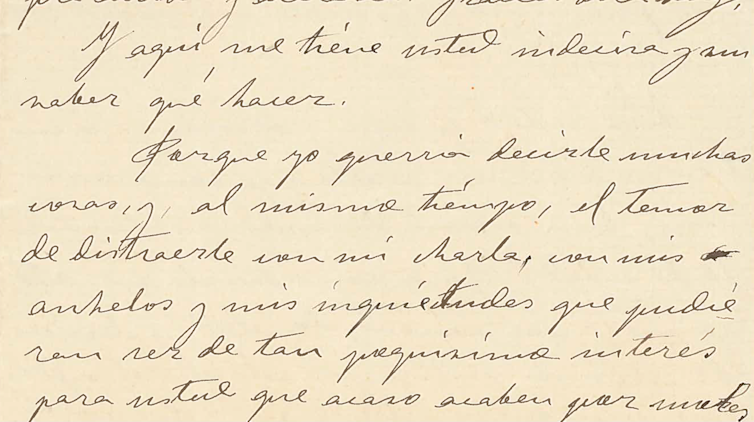 Y aquí me tiene usted indecisa y sin
saber qué hacer.
Porque yo querría decirle muchas
cosas, y, al mismo tiempo, el temor
de distraerle con mi charla, con mis
anhelos y mis inquietudes que pudie
ran ser de tan poquísimo interés
para usted que acaso acaben por moles